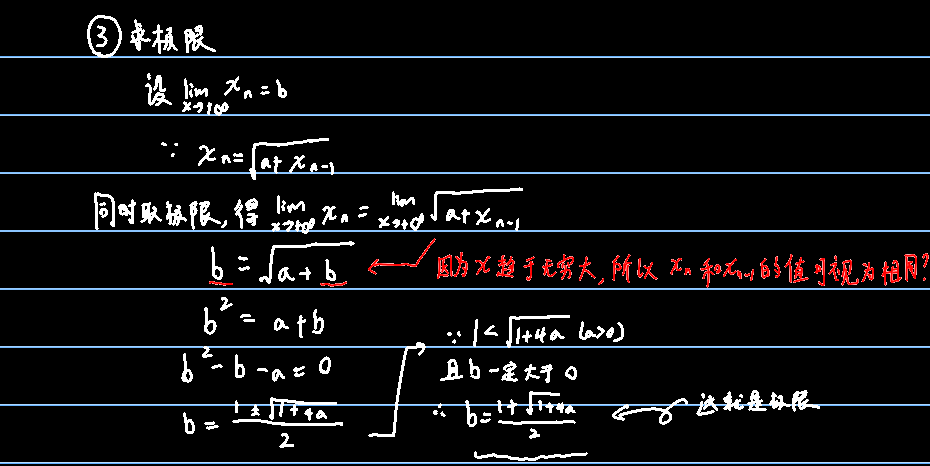 ③ 求极限
设 lim x→+∞ xₙ = b
∵ xₙ = √(a + xₙ₋₁)
同时取极限, 得 lim x→+∞ xₙ = lim x→+∞ √(a + xₙ₋₁)
b = √(a + b) ← 因为 x 趋于无穷大, 所以 xₙ 和 xₙ₋₁ 的值可视为相同?
b² = a + b
b² - b - a = 0
b = (1 ± √(1+4a)) / 2
∵ 1 < √(1+4a) (a>0)
且 b 一定大于 0
∴ b = (1 + √(1+4a)) / 2 ← 这就是极限